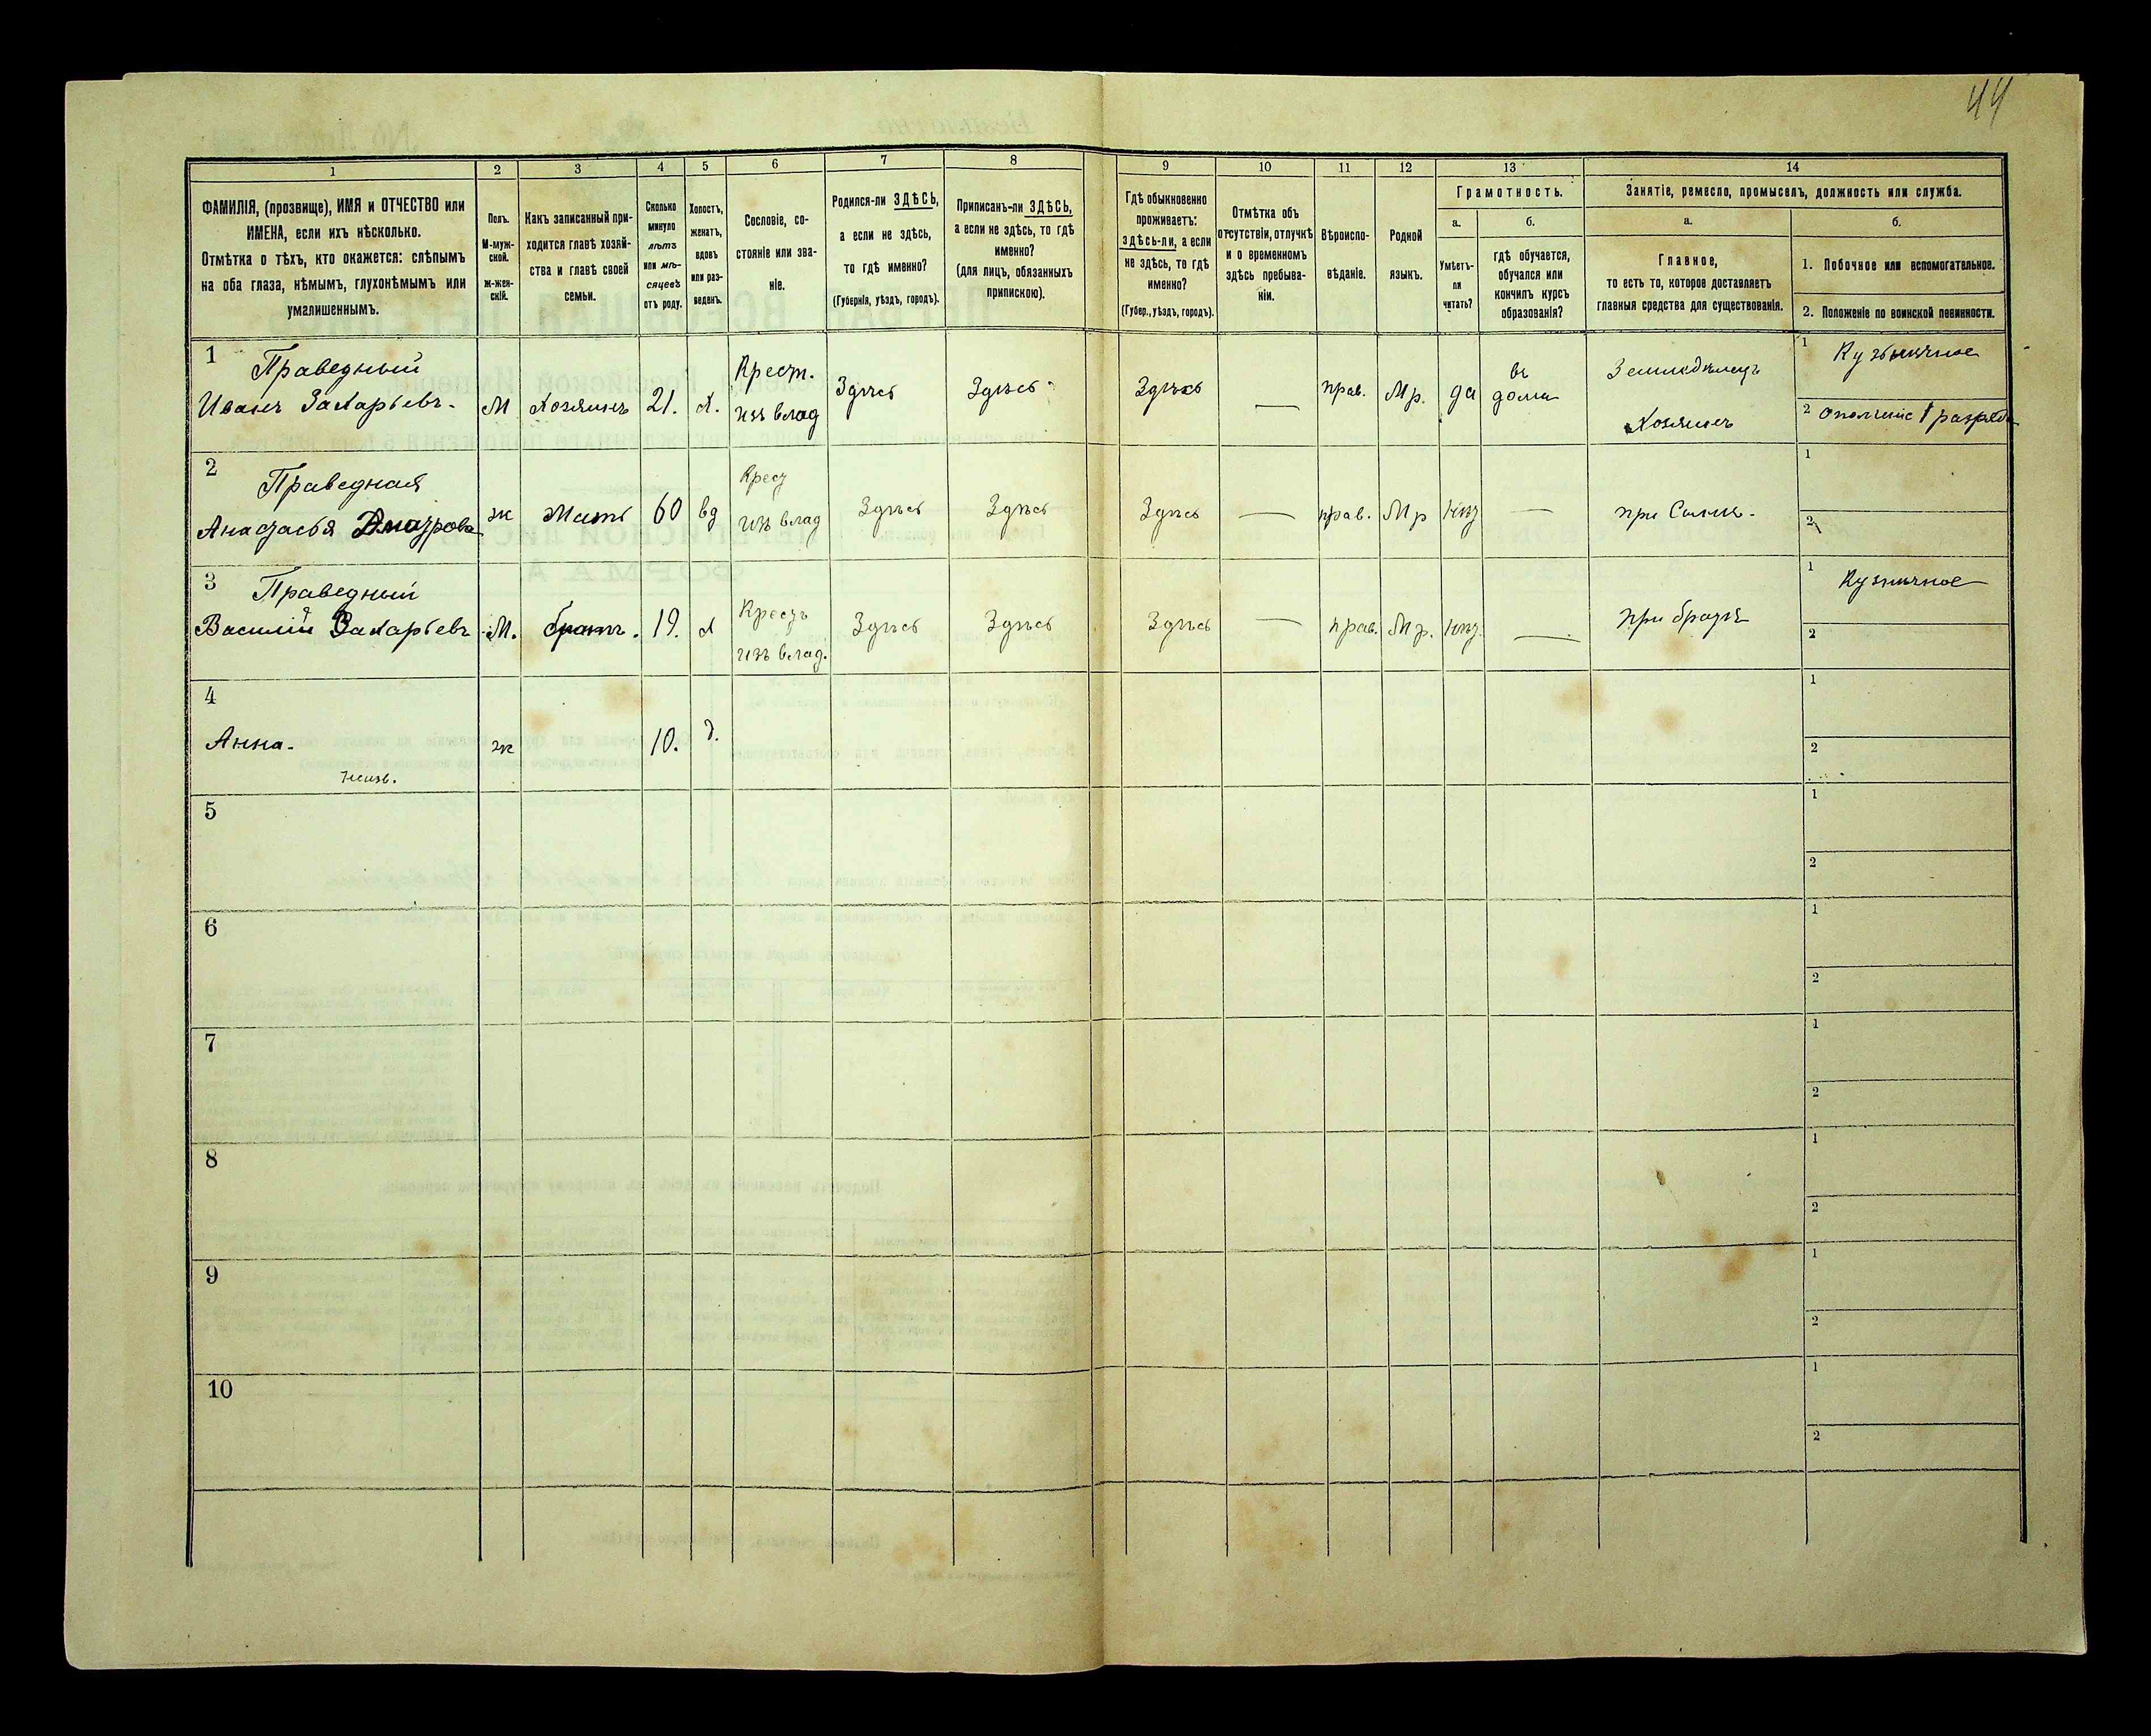 44
1
2
3
4
5
6
7
8
9
10
11
12
13
14
ФАМИЛІЯ, (прозвище), ИМЯ и ОТЧЕСТВО или
ИМЕНА, если ихъ нѣсколько.
Отмѣтка о тѣхъ, кто окажется: слѣпымъ
на оба глаза, нѣмымъ, глухонѣмымъ или
умалишеннымъ.
Полъ.
М-муж-
ской.
Ж-жен-
скій.
Какъ записанный при-
ходится главѣ хозяй-
ства и главѣ своей
семьи.
Сколько
минуло
лѣтъ
или мѣ-
сяцевъ
отъ роду.
Холостъ,
женатъ,
вдовъ
или раз-
веденъ.
Сословіе, со-
стояніе или зва-
ніе.
Родился-ли ЗДѢСЬ,
а если не здѣсь,
то гдѣ именно?
(Губернія, уѣздъ, городъ).
Приписанъ-ли ЗДѢСЬ,
а если не здѣсь, то гдѣ
именно?
(для лицъ, обязанныхъ
припискою).
Гдѣ обыкновенно
проживаетъ:
здѣсь-ли, а если
не здѣсь, то гдѣ
именно?
(Губер., уѣздъ, городъ).
Отмѣтка объ
отсутствіи, отлучкѣ
и о временномъ
здѣсь пребыва-
ніи.
Вѣроиспо-
вѣданіе.
Родной
языкъ.
Грамотность.
а.
Умѣетъ-
ли
читать?
б.
гдѣ обучается,
обучался или
кончилъ курсъ
образованія?
Занятіе, ремесло, промыселъ, должность или служба.
а.
Главное,
то есть то, которое доставляетъ
главныя средства для существованія.
б.
1. Побочное или вспомогательное.
2. Положеніе по воинской повинности.
1
Праведный
Иванъ Захарьевъ.
М
Хозяинъ
21.
Х.
Крест.
изъ влад
Здѣсь
Здѣсь
Здѣсь
—
прав.
Мр.
да
въ
дома
Земледѣлецъ
Хозяинъ
1 Кузничное
2 Ополчисе 1 разряда
2
Праведная
Анастасья Дмитрова
ж
Мать
60
вд
Крест
изъ влад
Здѣсь
Здѣсь
Здѣсь
—
прав.
Мр
нѣт
—
при Сынѣ.
1
2
3
Праведный
Василій Захарьевъ
М.
братъ.
19.
х
Крестъ
изъ влад.
Здѣсь
Здѣсь
Здѣсь
—
прав.
Мр.
нѣт.
—
при братѣ
1 Кузничное
2
4
Анна.
ж
10.
д.
1
2
5
1
2
6
1
2
7
1
2
8
1
2
9
1
2
10
1
2